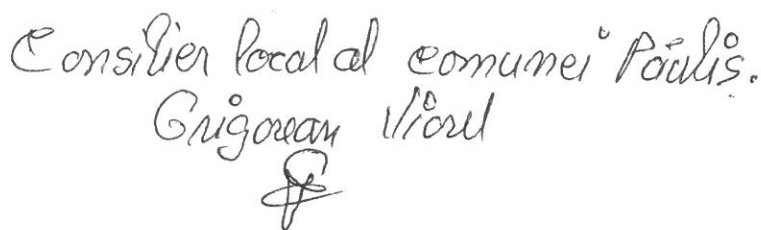 Consilier local al comunei Păuliș.
Grigorean Viorel